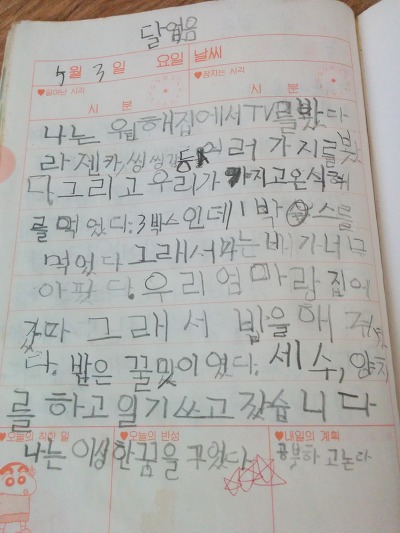 달였음
5월 3일 요일 날씨
♥일어난 시각 ♥잠자는 시각
시 분 시 분
나는 윔해집에서 TV를밨다
라젠카, 씽씽캅등 여러 가지를 봤
다. 그리고 우리가 가지고온식혀
를 먹었다. 3박스인데 1박스를
먹었다 그래서 나는 배가너무
아팠다. 우리 엄마랑 집에
갔따 그래서 밥을 해 줘
다. 밮은 꿀맛이였다. 세수, 양치
를 하고 일기쓰고 갔습니다
♥오늘의 착한 일 ♥오늘의 반성 ♥내일의 계획
나는 이상한꿈을 꾸었다 공부하고논다